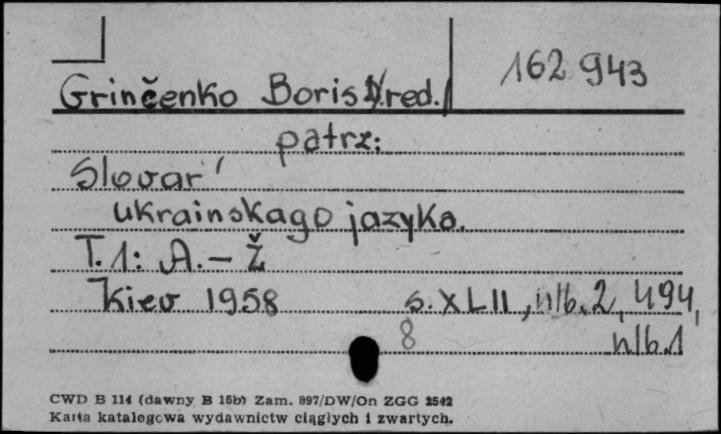 162 943
Grinčenko Boris D. red.
patrz:
Slovar'
ukrainskago jazyka.
T. 1: A. - Ž
Kiev 1958 s. XLII, nlb. 2, 494,
8 nlb. 1
CWD B 114 (dawny B 15b) Zam. 997/DW/On ZGG 2542
Karta katalogowa wydawnictw ciągłych i zwartych.